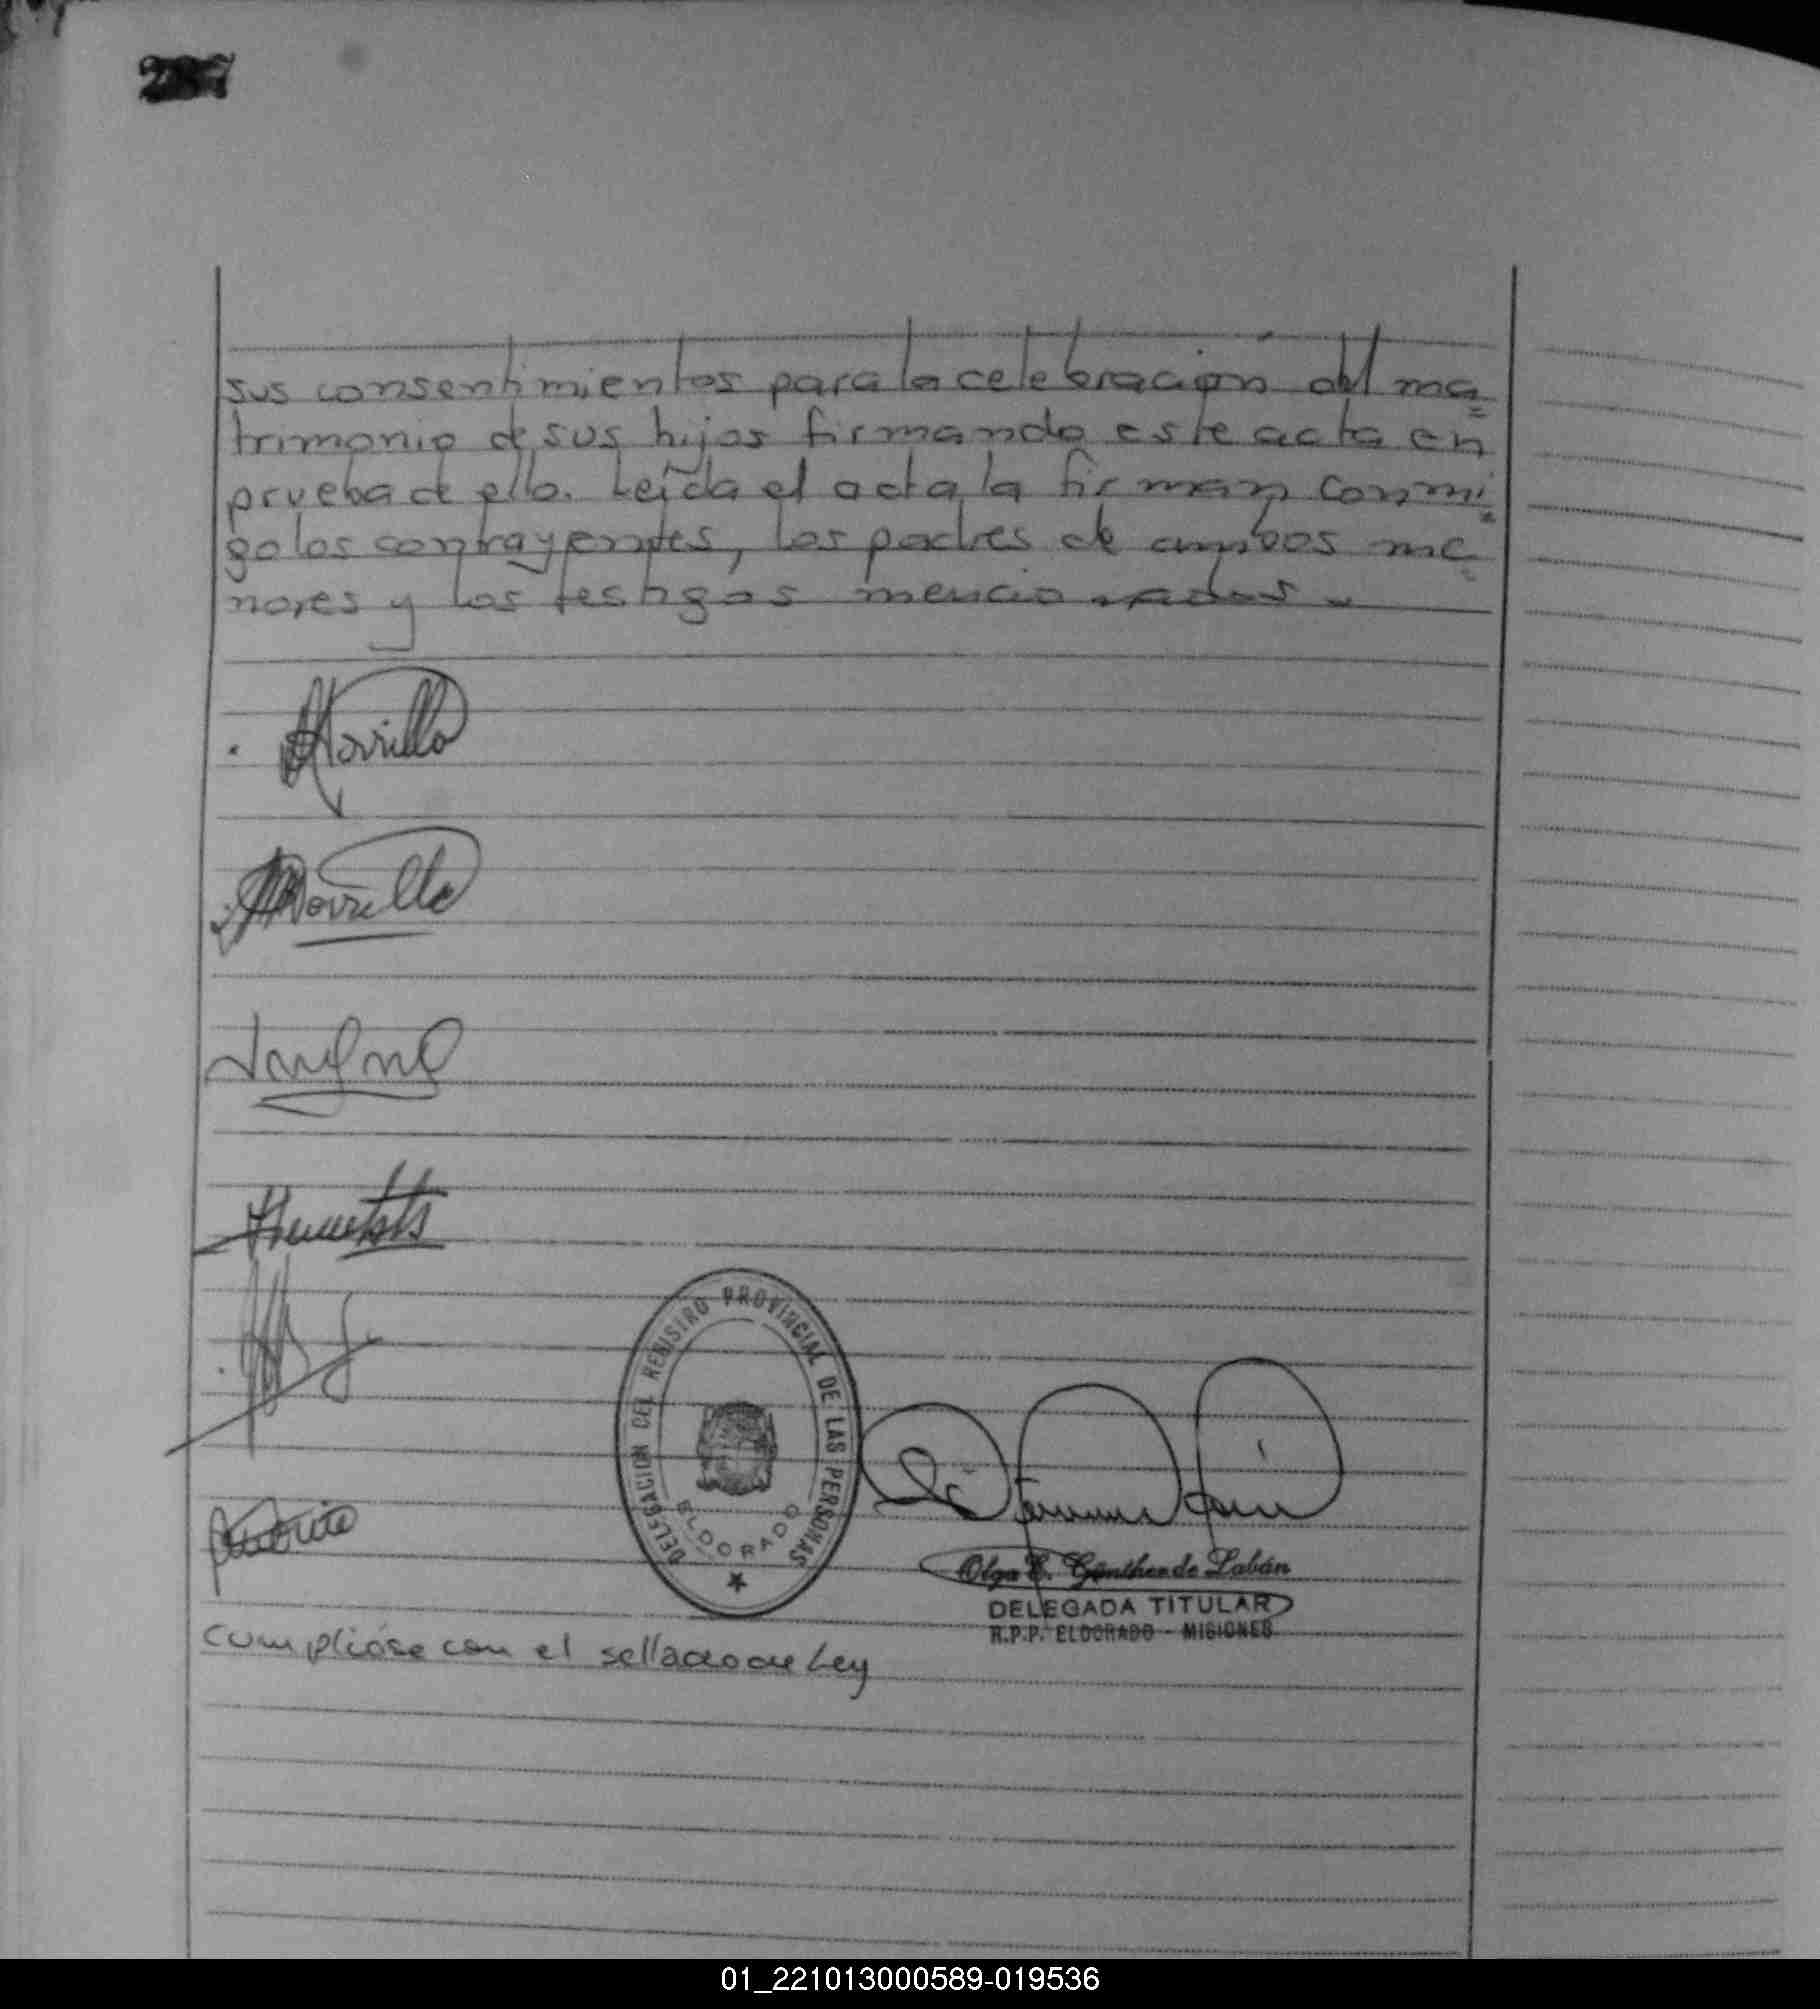 sus consentimientos para la celebración del ma=
trimonio de sus hijos firmando este acta en
prueba de ello. Leída el acta la firman conmi=
go los contrayentes, los padres de ambos me=
nores y los testigos mencionados.
DELEGACION DEL REGISTRO PROVINCIAL DE LAS PERSONAS
ELDORADO
Olga E. Günther de Labán
DELEGADA TITULAR
R.P.P. ELDORADO - MISIONES
Cumplióse con el sellado de Ley
01_221013000589-019536